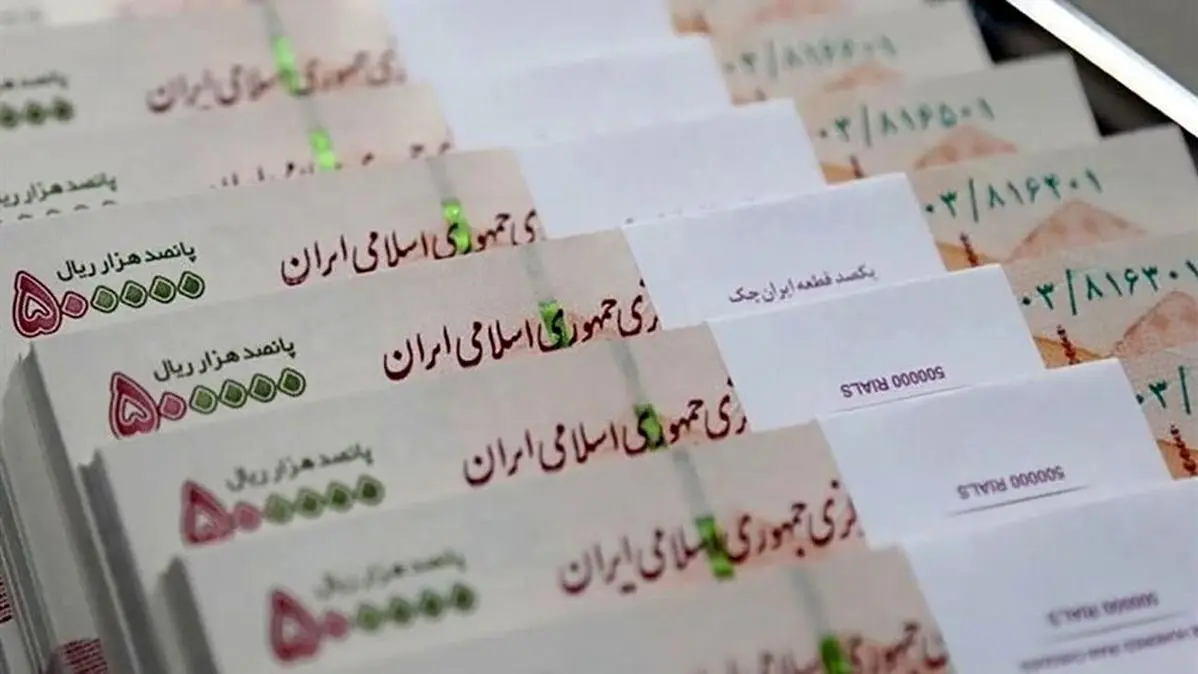 پانصد هزار ریال
جمهوری اسلامی ایران
۰۳/۸۱۶۶۰۱
پانصد هزار ریال
۰۳/۸۱۶۵۰۱
پانصد هزار ریال
۵۰۰۰۰۰
ی جمهوری اسلامی ایران
۰۳/۸۱۶۴۰۱
یکصد قطعه ایران چک
پانصد هزار ریال
۵۰۰۰۰۰
زی جمهوری اسلامی ایران
۰۳/۸۱۶۳۰۱
500000 RIALS
پانصد هزار ریال
۵۰۰۰۰۰
زی جمهوری اسلامی ایران
۰۳/
500000 RIALS
پانصد هزار ریال
۵۰۰۰۰۰
کزی جمهوری اسلامی ایران
500000 RIALS